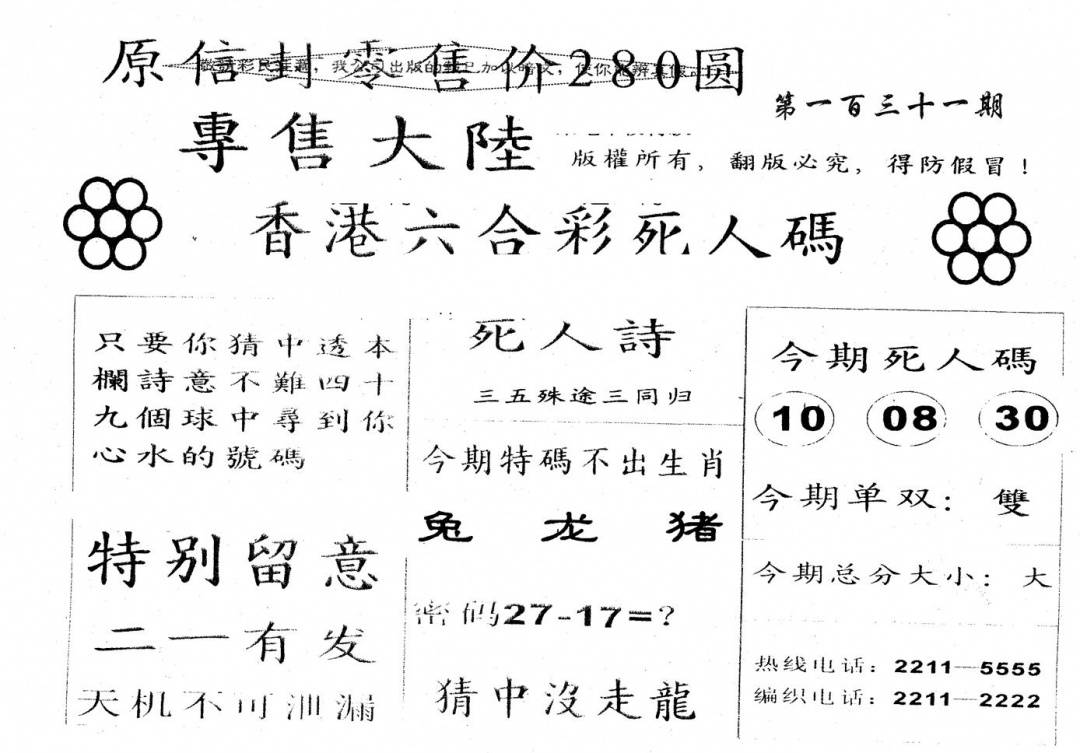 原信封零售价280圆
第一百三十一期
專售大陸
版權所有，翻版必究，得防假冒！
香港六合彩死人碼
只要你猜中透本
欄詩意不難四十
九個球中尋到你
心水的號碼
特别留意
二一有发
天机不可泄漏
死人詩
三五殊途三同归
今期特碼不出生肖
兔 龙 猪
密码27-17=？
猜中沒走龍
今期死人碼
10 08 30
今期单双：雙
今期总分大小：大
热线电话：2211—5555
编织电话：2211—2222